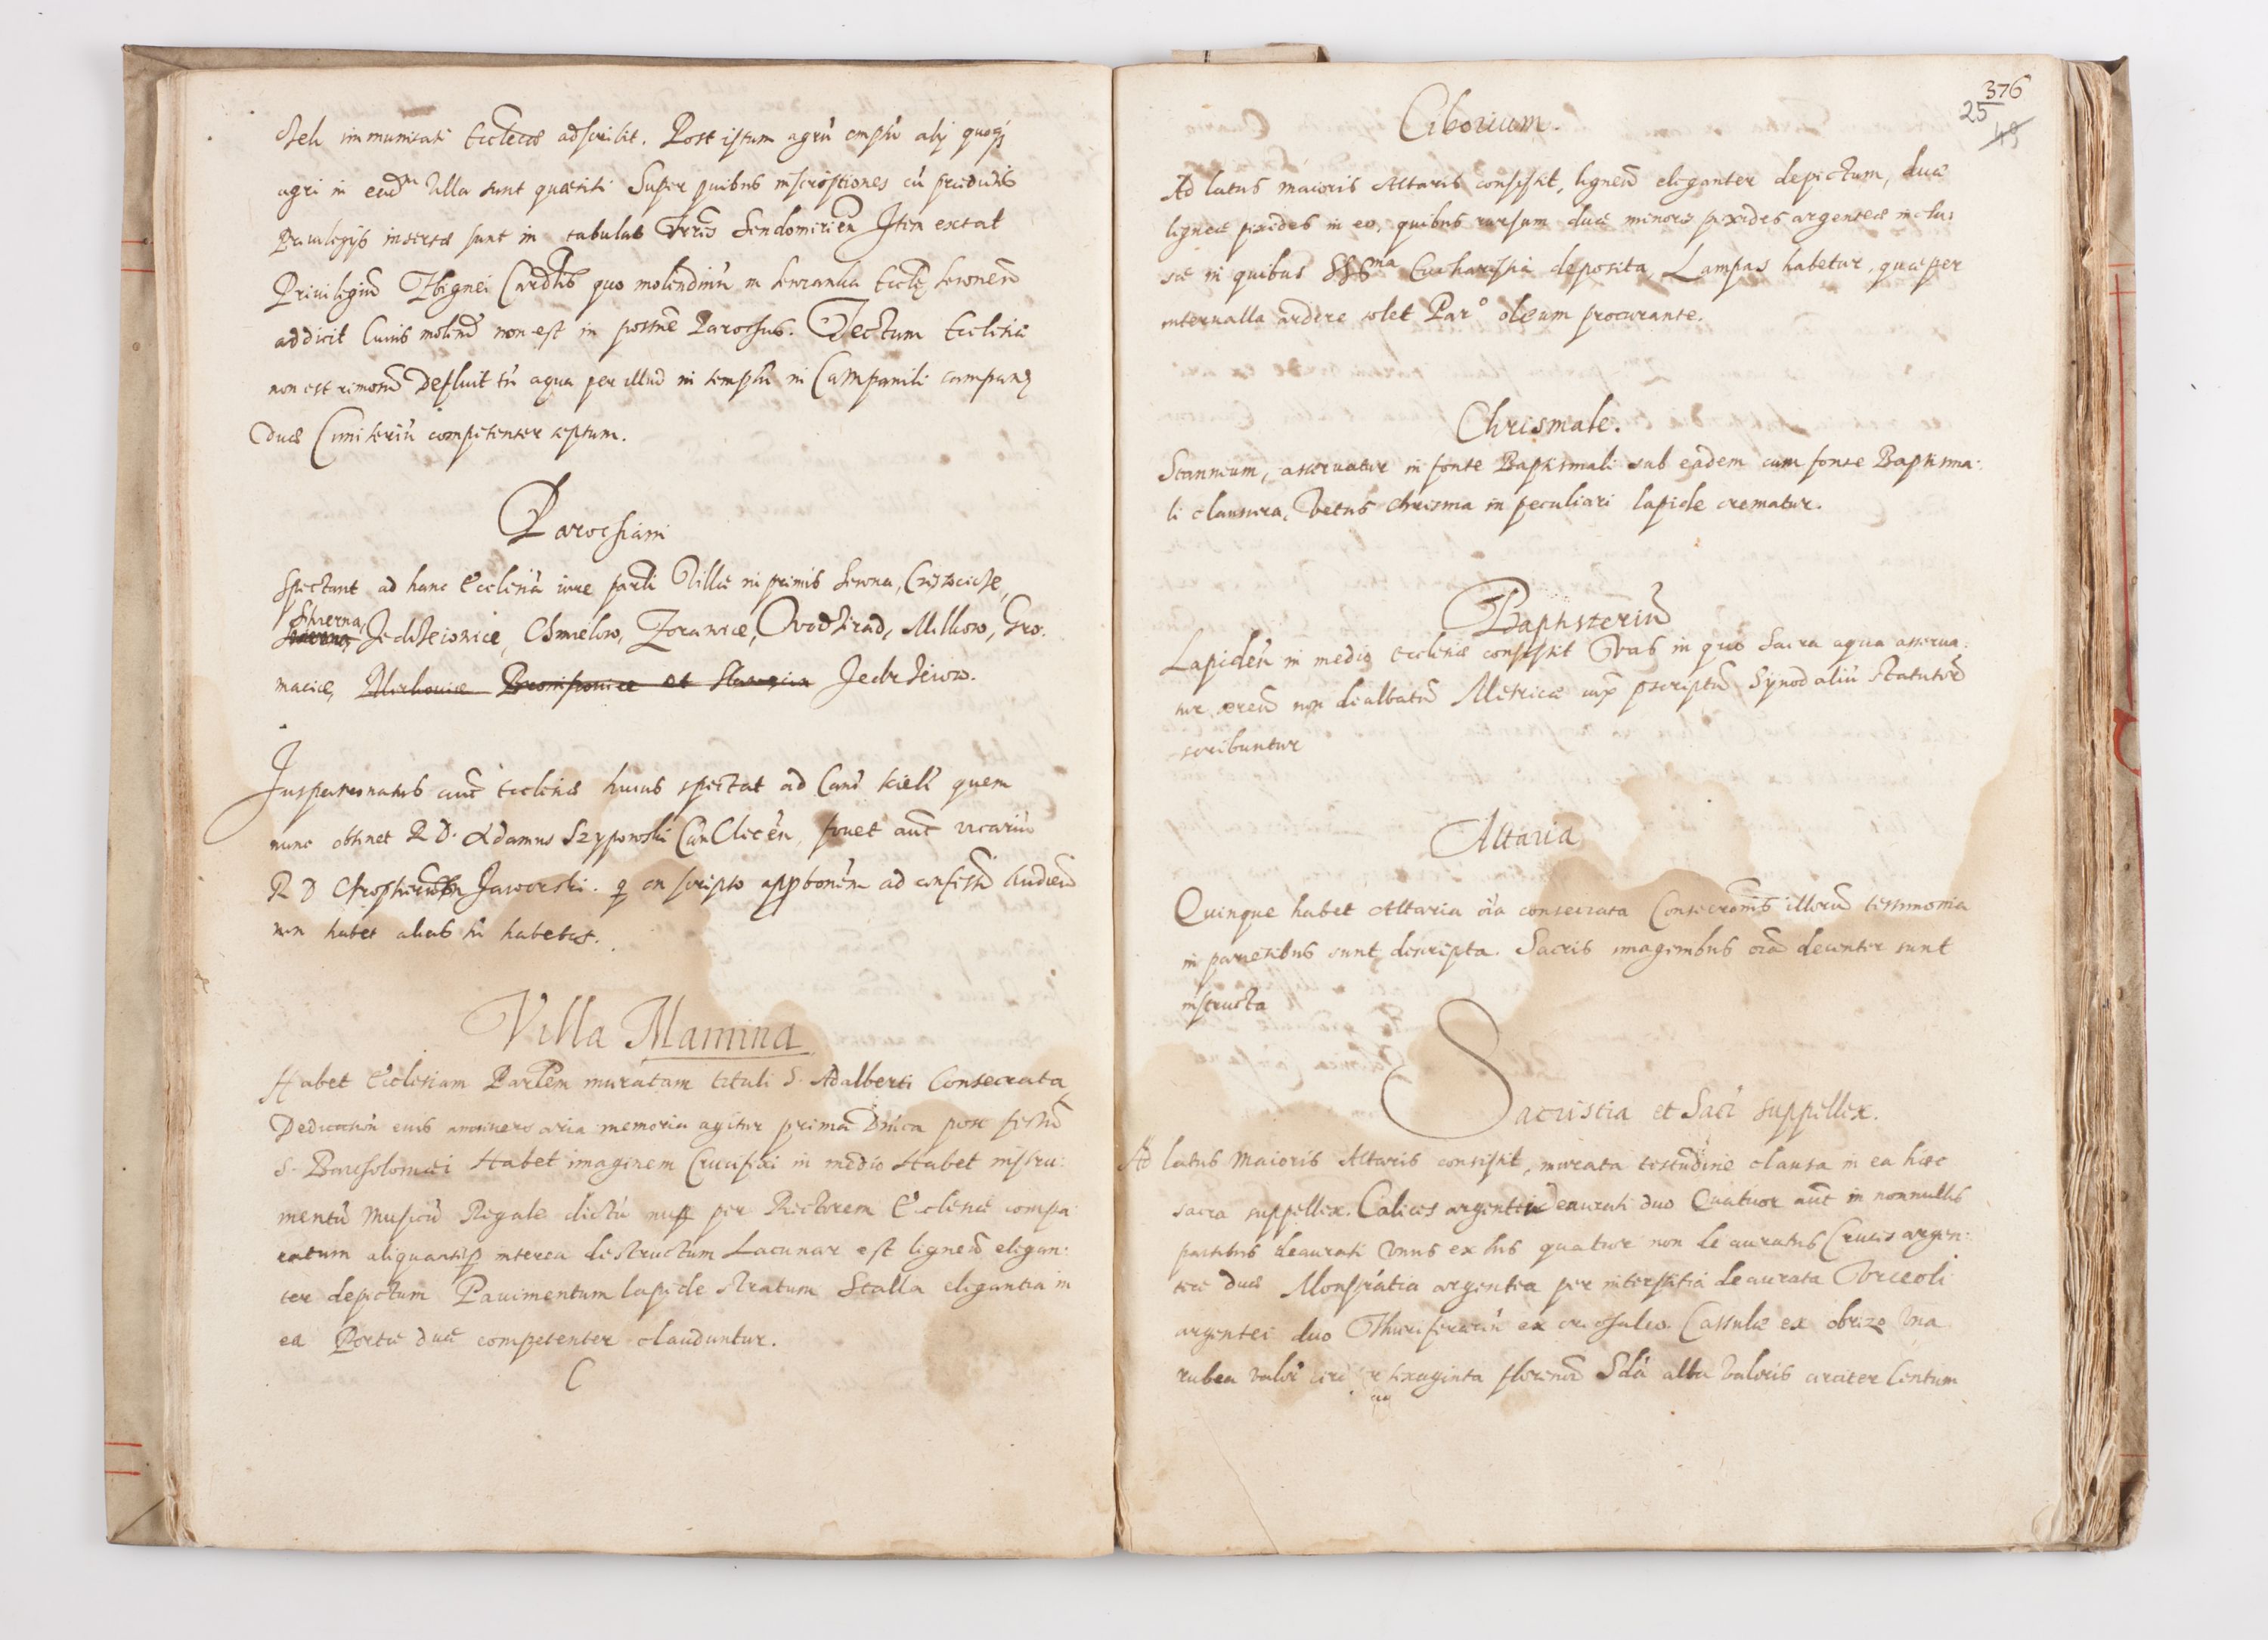 immunitati Ecclesiæ adscribit. Post istum agrũ emptũ alij quoq
agri in eadm Villa sunt quæsiti Super quibus inscriptiones cũ prædictis
Priuilegijs insertæ sunt in tabulas Trris Sendomirien Item extat
Priuilegiũ Sbignei Cardlis quo molendinũ in
addicit Cuius molend non est in possne Parochus. Tectum Ecclesiæ
non est rimosũ Defluit tñ aqua per illud in templũ in Campanili campanæ
Duæ Cimiteriũ competenter septum.
Parochiani
Spectant ad hanc Ecclesiã iure parli Villæ in primis
Jedrzeiowice, Chmielow, Milkow, Gro:
macice, Jedrzeiow.
Juspatronatus aut Ecclesiæ huius spectat ad Canũ Kielc quem
nunc obtinet R D. Adamus Szyponski Can fouet aut vicariũ
R D Jaworski. q in scripto appbonem ad confess Audien
non habet alias tñ habetus.
Villa Mamina
Habet Ecclesiam Parlem muratam tituli S. Adalberti Consecrata
Dedicationis eius anniuersaria memoria agitur prima Dnica post festũ
S. Bartholomæi Habet imaginem Crucifixi in medio Habet instru:
mentũ Musicũ Regale dictũ nup per Rectorem Ecclesiæ compa
ratum aliquantisp interea destructum Lacunar est ligneũ elegan:
ter depictum Pauimentum lapide stratum Stalla elegantia in
ea Portæ duæ competenter clauduntur.
C
376
25
49
Ciborium.
Ad latus maioris Altaris consistit, ligneũ eleganter depictum, duæ
ligneæ pixides in eo, quibus rursum duæ minores pixides argenteæ inclu:
sæ in quibus SSma Eucharistia deposita, Lampas habetur, quæ per
interualla ardere solet Paro oleum procurante.
Chrismale.
Stanneum, asseruatur in fonte Baptismali sub eadem cum fonte Baptisma:
li clausura, Vetus chrisma in peculiari lapide crematur.
Baptisteriũ
Lapideũ in medio Ecclesiæ consistit Vas in quo Sacra aqua asserua:
tur æreũ non dealbatũ Metricæ iux pscriptũ Synodaliũ Statutorũ
scribuntur
Altaria
Quinque habet Altaria oia consecrata Consecronis illorũ testimonia
in parietibus sunt descripta. Sacris imaginibus oia decenter sunt
instructa
Sacristia et Sacr suppellex.
Ad latus Maioris Altaris consistit, murata testudine clausa in ea hæc
sacra suppellex. Calices argentei deaurati duo Quatuor aut in nonnullis
partibus deaurati Vnus ex his quatuor non deauratus Cruces argen:
teæ duæ Monstratia argentea per interstitia deaurata Vrceoli
argentei duo Thuriferariũ ex orichalco. Cassulæ ex obrizo Vna
rubea valor circi r sexaginta florenorũ Sda alba valoris circiter Centum